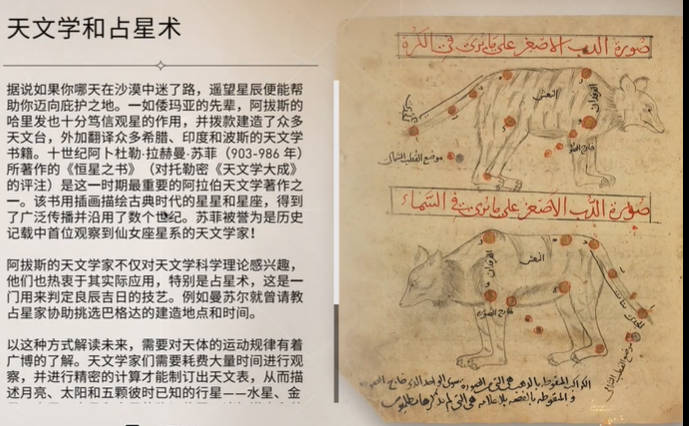 天文学和占星术
据说如果你哪天在沙漠中迷了路，遥望星辰便能帮
助你迈向庇护之地。一如倭玛亚的先辈，阿拔斯的
哈里发也十分笃信观星的作用，并拨款建造了众多
天文台，外加翻译众多希腊、印度和波斯的天文学
书籍。十世纪阿卜杜勒·拉赫曼·苏菲（903-986 年）
所著作的《恒星之书》（对托勒密《天文学大成》
的评注）是这一时期最重要的阿拉伯天文学著作之
一。该书用插画描绘古典时代的星星和星座，得到
了广泛传播并沿用了数个世纪。苏菲被誉为是历史
记载中首位观察到仙女座星系的天文学家！
阿拔斯的天文学家不仅对天文学科学理论感兴趣，
他们也热衷于其实际应用，特别是占星术，这是一
门用来判定良辰吉日的技艺。例如曼苏尔就曾请教
占星家协助挑选巴格达的建造地点和时间。
以这种方式解读未来，需要对天体的运动规律有着
广博的了解。天文学家们需要耗费大量时间进行观
察，并进行精密的计算才能制订出天文表，从而描
述月亮、太阳和五颗彼时已知的行星——水星、金
صورة الدب الاصغر على ما يرى في الكرة
النعش
الفرقدان
موضع القطب الشمالي
صورة الدب الاصغر على ما يرى في السماء
النعش
الفرقدان